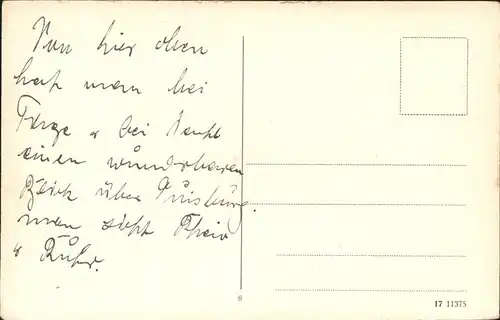 Von hier oben
hat man bei
Tage u bei Nacht
einen wunderbaren
Blick über Duisburg.
man sieht Rhein
u Ruhr.
8
17 11375